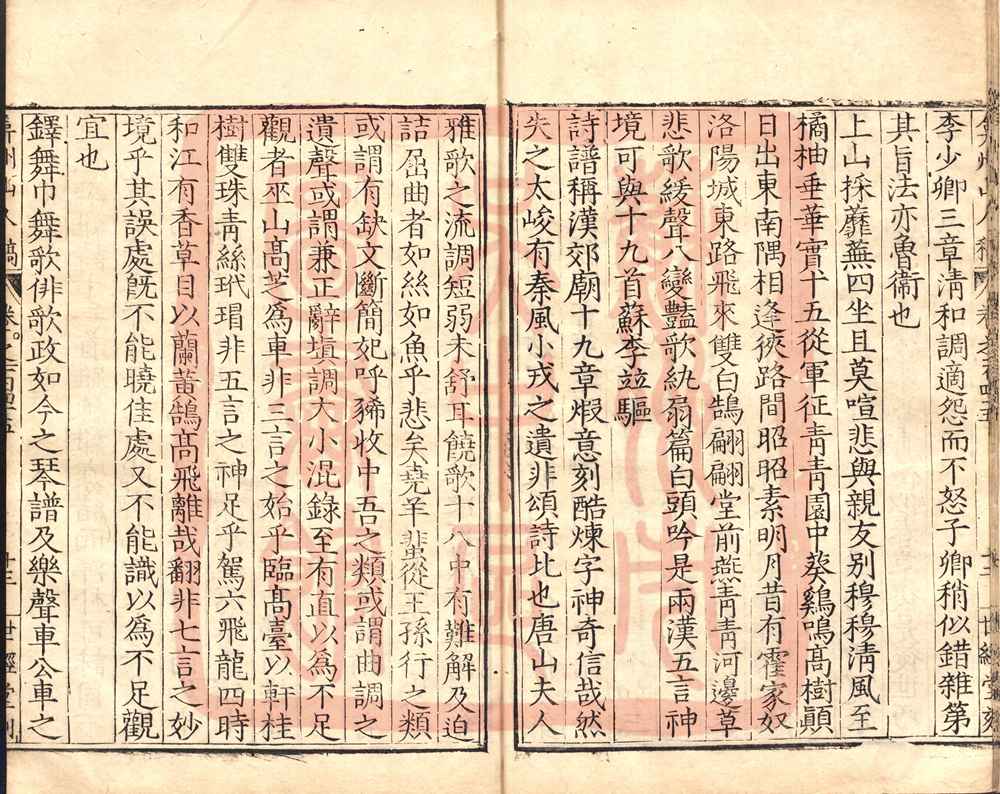 李少卿三章淸和調適怨而不怒子卿稍似錯雜第
其旨法亦魯衞也
上山採蘼蕪四坐且莫喧悲與親友别穆穆淸風至
橘柚垂華實十五從軍征青青園中葵鷄鳴髙樹顚
日出東南隅相逢狹路間昭昭素明月昔有霍家奴
洛陽城東路飛來雙白鵠翩翩堂前燕青青河邊草
悲歌緩聲八變豔歌紈扇篇白頭吟是兩漢五言神
境可與十九首蘇李竝驅
詩譜稱漢郊廟十九章煆意刻酷煉字神奇信哉然
失之太峻有秦風小戎之遺非頌詩比也唐山夫人
雅歌之流調短弱未舒耳饒歌十八中有難解及迫
詰屈曲者如絲如魚乎悲矣堯羊蜚從王孫行之類
或謂有缺文斷簡妃呼豨收中吾之類或謂曲調之
遺聲或謂兼正辭塡調大小混錄至有直以爲不足
觀者巫山髙芝爲車非三言之始乎臨髙臺以軒桂
樹雙珠青絲玳瑁非五言之神足乎駕六飛龍四時
和江有香草目以蘭黃鵠髙飛離哉翻非七言之妙
境乎其誤處旣不能曉佳處又不能識以爲不足觀
宜也
鐸舞巾舞歌俳歌政如今之琴譜及樂聲車公車之